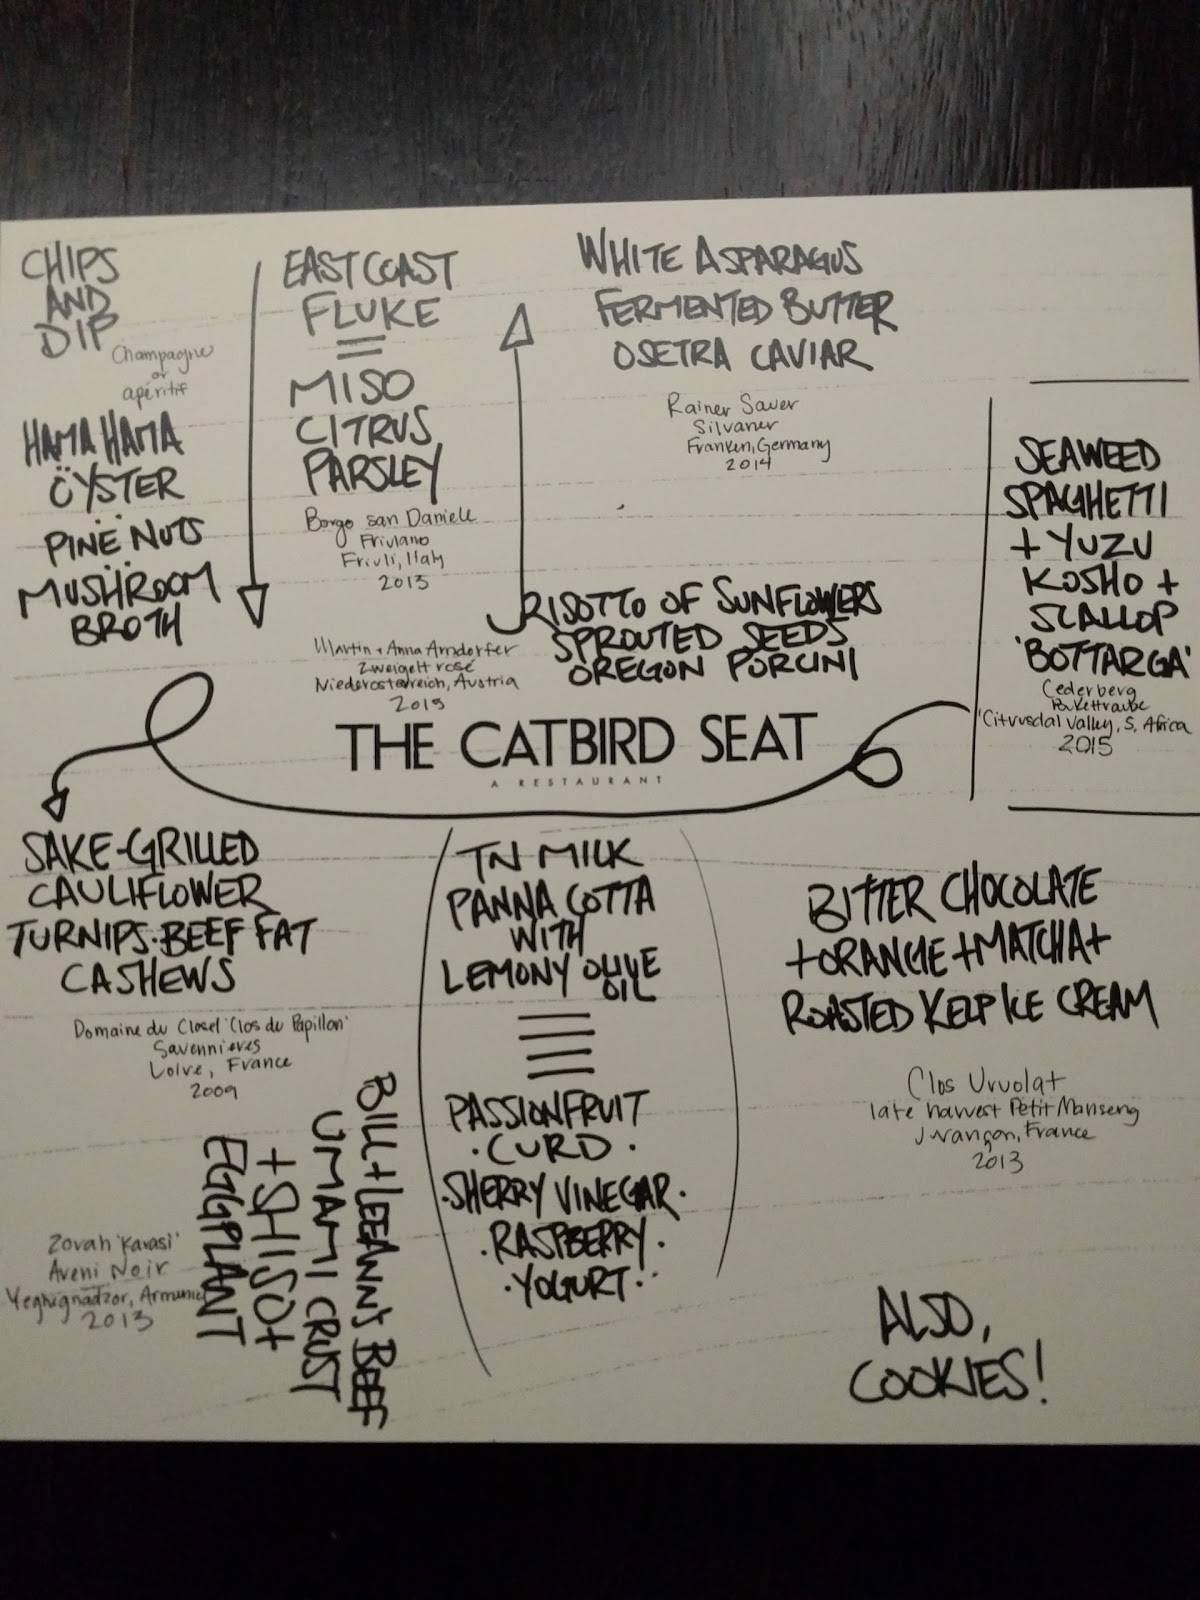 CHIPS
AND
DIP
Champagne
or
apéritif
HAMA HAMA
ÖYSTER
PINE NUTS
MUSHROOM
BROTH
EAST COAST
FLUKE
MISO
CITRUS
PARSLEY
Borgo San Daniele
Friulano
Friuli, Italy
2013
Martin + Anna Arndorfer
Zweigelt rosé
Niederosterreich, Austria
2015
RISOTTO OF SUNFLOWERS
SPROUTED SEEDS
OREGON PORCINI
WHITE ASPARAGUS
FERMENTED BUTTER
OSETRA CAVIAR
Rainer Sauer
Silvaner
Franken, Germany
2014
SEAWEED
SPAGHETTI
+ YUZU
KOSHO +
SCALLOP
'BOTTARGA'
Cederberg
Bukettraube
Citrusdal Valley, S. Africa
2015
THE CATBIRD SEAT
A RESTAURANT
SAKE-GRILLED
CAULIFLOWER
TURNIPS · BEEF FAT
CASHEWS
Domaine du Closel 'Clos du Papillon'
Savennieres
Loire, France
2009
BILL + LEEANN'S BEEF
UMAMI CRUST
+ SHISO +
EGGPLANT
Zorah 'Karasi'
Areni Noir
Yeghignadzor, Armenia
2013
TN MILK
PANNA COTTA
WITH
LEMONY OLIVE
OIL
PASSIONFRUIT
· CURD ·
· SHERRY VINEGAR ·
· RASPBERRY ·
· YOGURT ·
BITTER CHOCOLATE
+ ORANGE + MATCHA +
ROASTED KELP ICE CREAM
Clos Uroulat
late harvest Petit Manseng
Jurançon, France
2013
ALSO,
COOKIES!